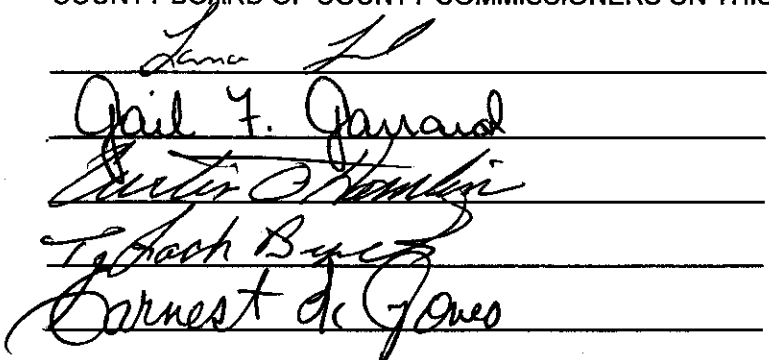 COUNTY BOARD OF COUNTY COMMISSIONERS ON THIS
Lana
Gail F. Garrard
Curtis O Hamlin
Ty Zach
Earnest L. Jones